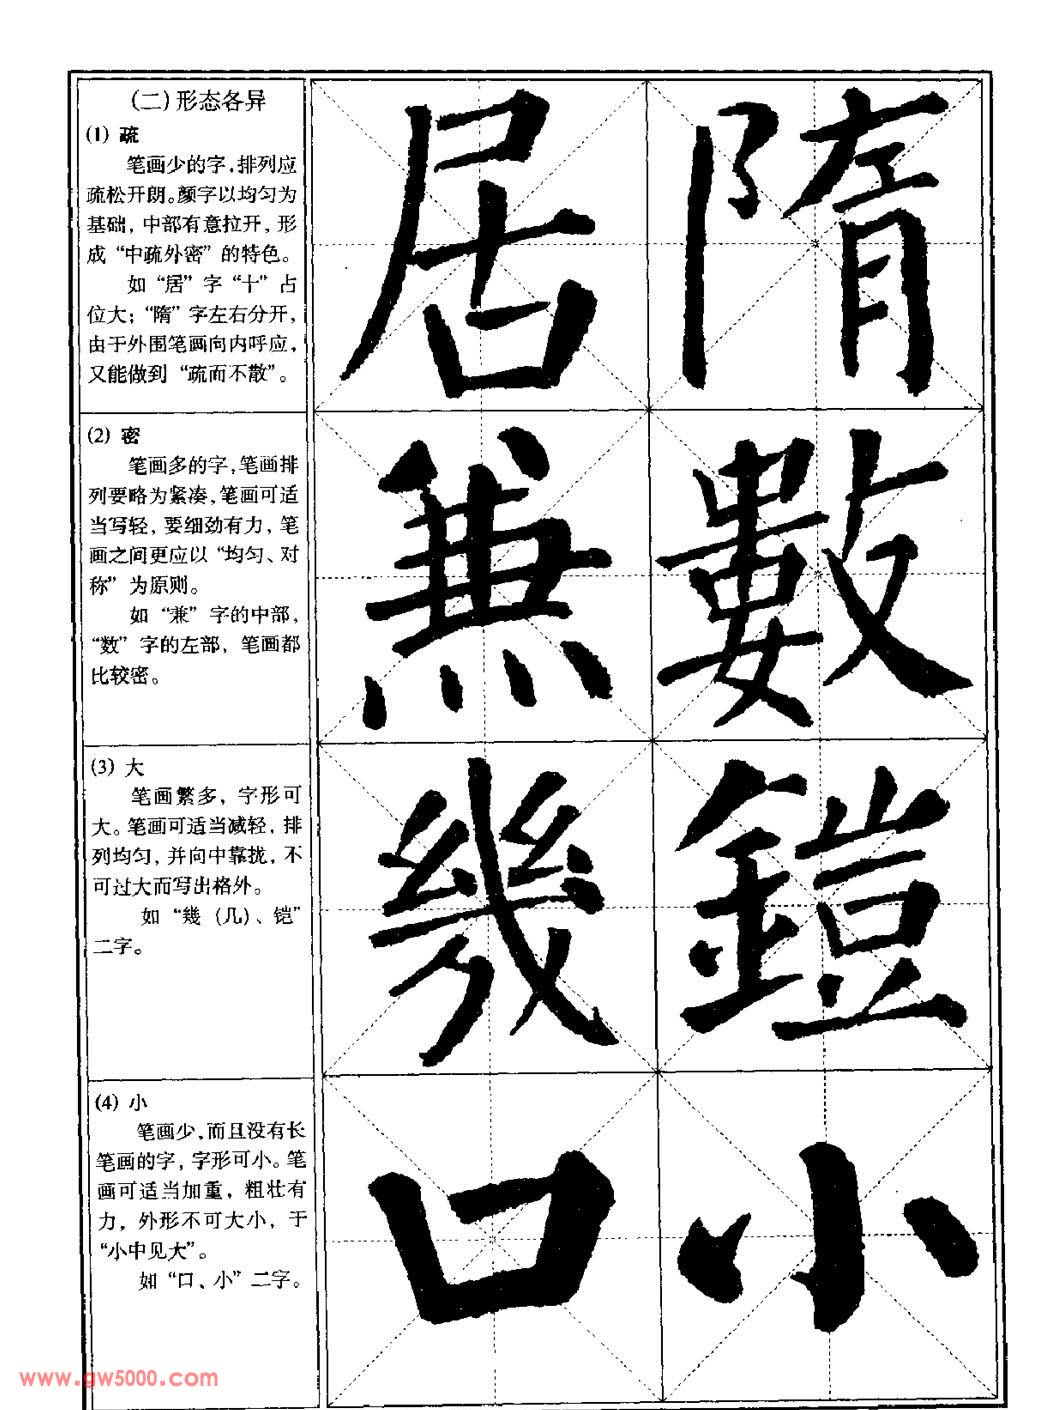 (二)形态各异
(1) 疏
笔画少的字,排列应
疏松开朗。颜字以均匀为
基础，中部有意拉开，形
成“中疏外密”的特色。
如“居”字“十”占
位大；“隋”字左右分开，
由于外围笔画向内呼应，
又能做到“疏而不散”。
居 隋
(2) 密
笔画多的字,笔画排
列要略为紧凑,笔画可适
当写轻，要细劲有力，笔
画之间更应以“均匀、对
称”为原则。
如“兼”字的中部，
“数”字的左部，笔画都
比较密。
兼 數
(3) 大
笔画繁多，字形可
大。笔画可适当减轻，排
列均匀，并向中靠拢，不
可过大而写出格外。
如“幾 (几)、铠”
二字。
幾 鎧
(4) 小
笔画少,而且没有长
笔画的字，字形可小。笔
画可适当加重，粗壮有
力，外形不可大小，于
“小中见大”。
如“口、小”二字。
口 小
www.gw5000.com